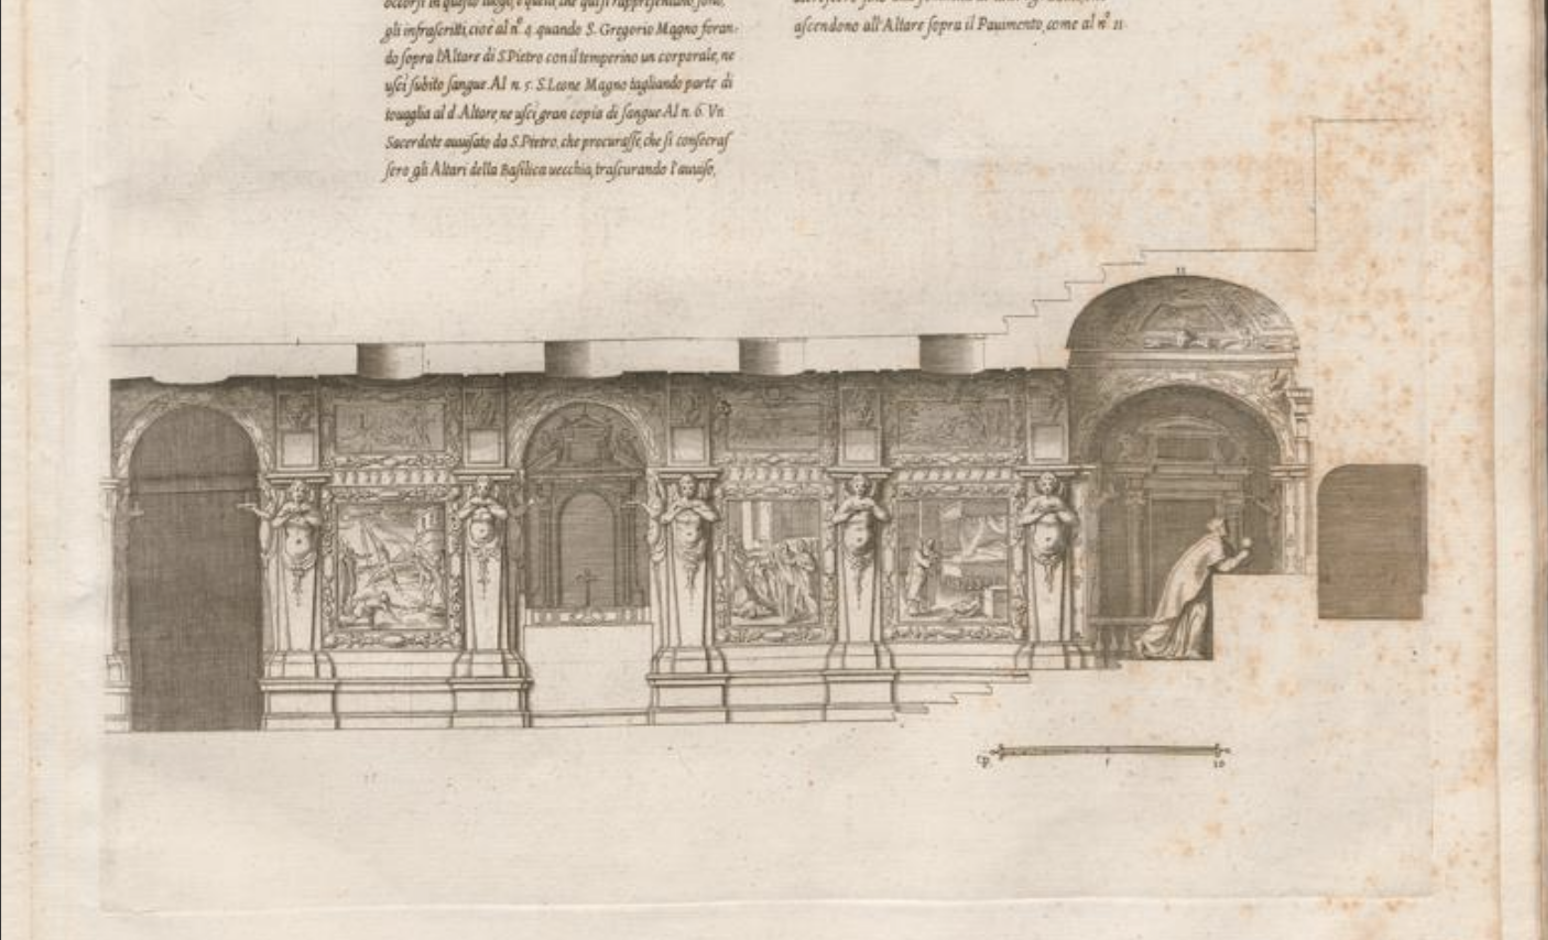 occorsi in questo luogo, e quelli, che qui si rappresentano, sono,
gli infrascritti, cioè al nº. 4. quando S. Gregorio Magno foran-
do sopra l'Altare di S. Pietro con il temperino un corporale, ne
uscì subito sangue. Al n. 5. S. Leone Magno tagliando parte di
touaglia al d. Altare, ne uscì gran copia di sangue. Al n. 6. Vn
Sacerdote auuisato da S. Pietro, che procurasse, che si consecras
sero gli Altari della Basilica uecchia, trascurando l'auuiso,
ascendono all'Altare sopra il Pauimento, come al nº. 11
11
cp. 5 10